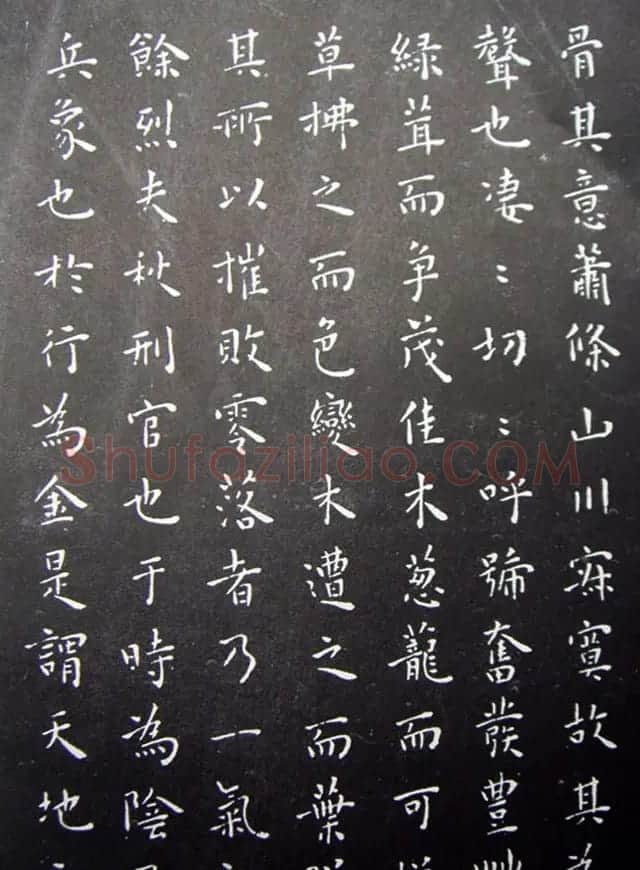 骨其意蕭條山川寂寞故其為
聲也凄〻切〻呼號奮發豐艸
緑茸而争茂佳木葱蘢而可
草拂之而色變木遭之而葉
其所以摧敗零落者乃一氣
餘烈夫秋刑官也于時為陰
兵象也於行為金是謂天地
Shufaziliao.COM